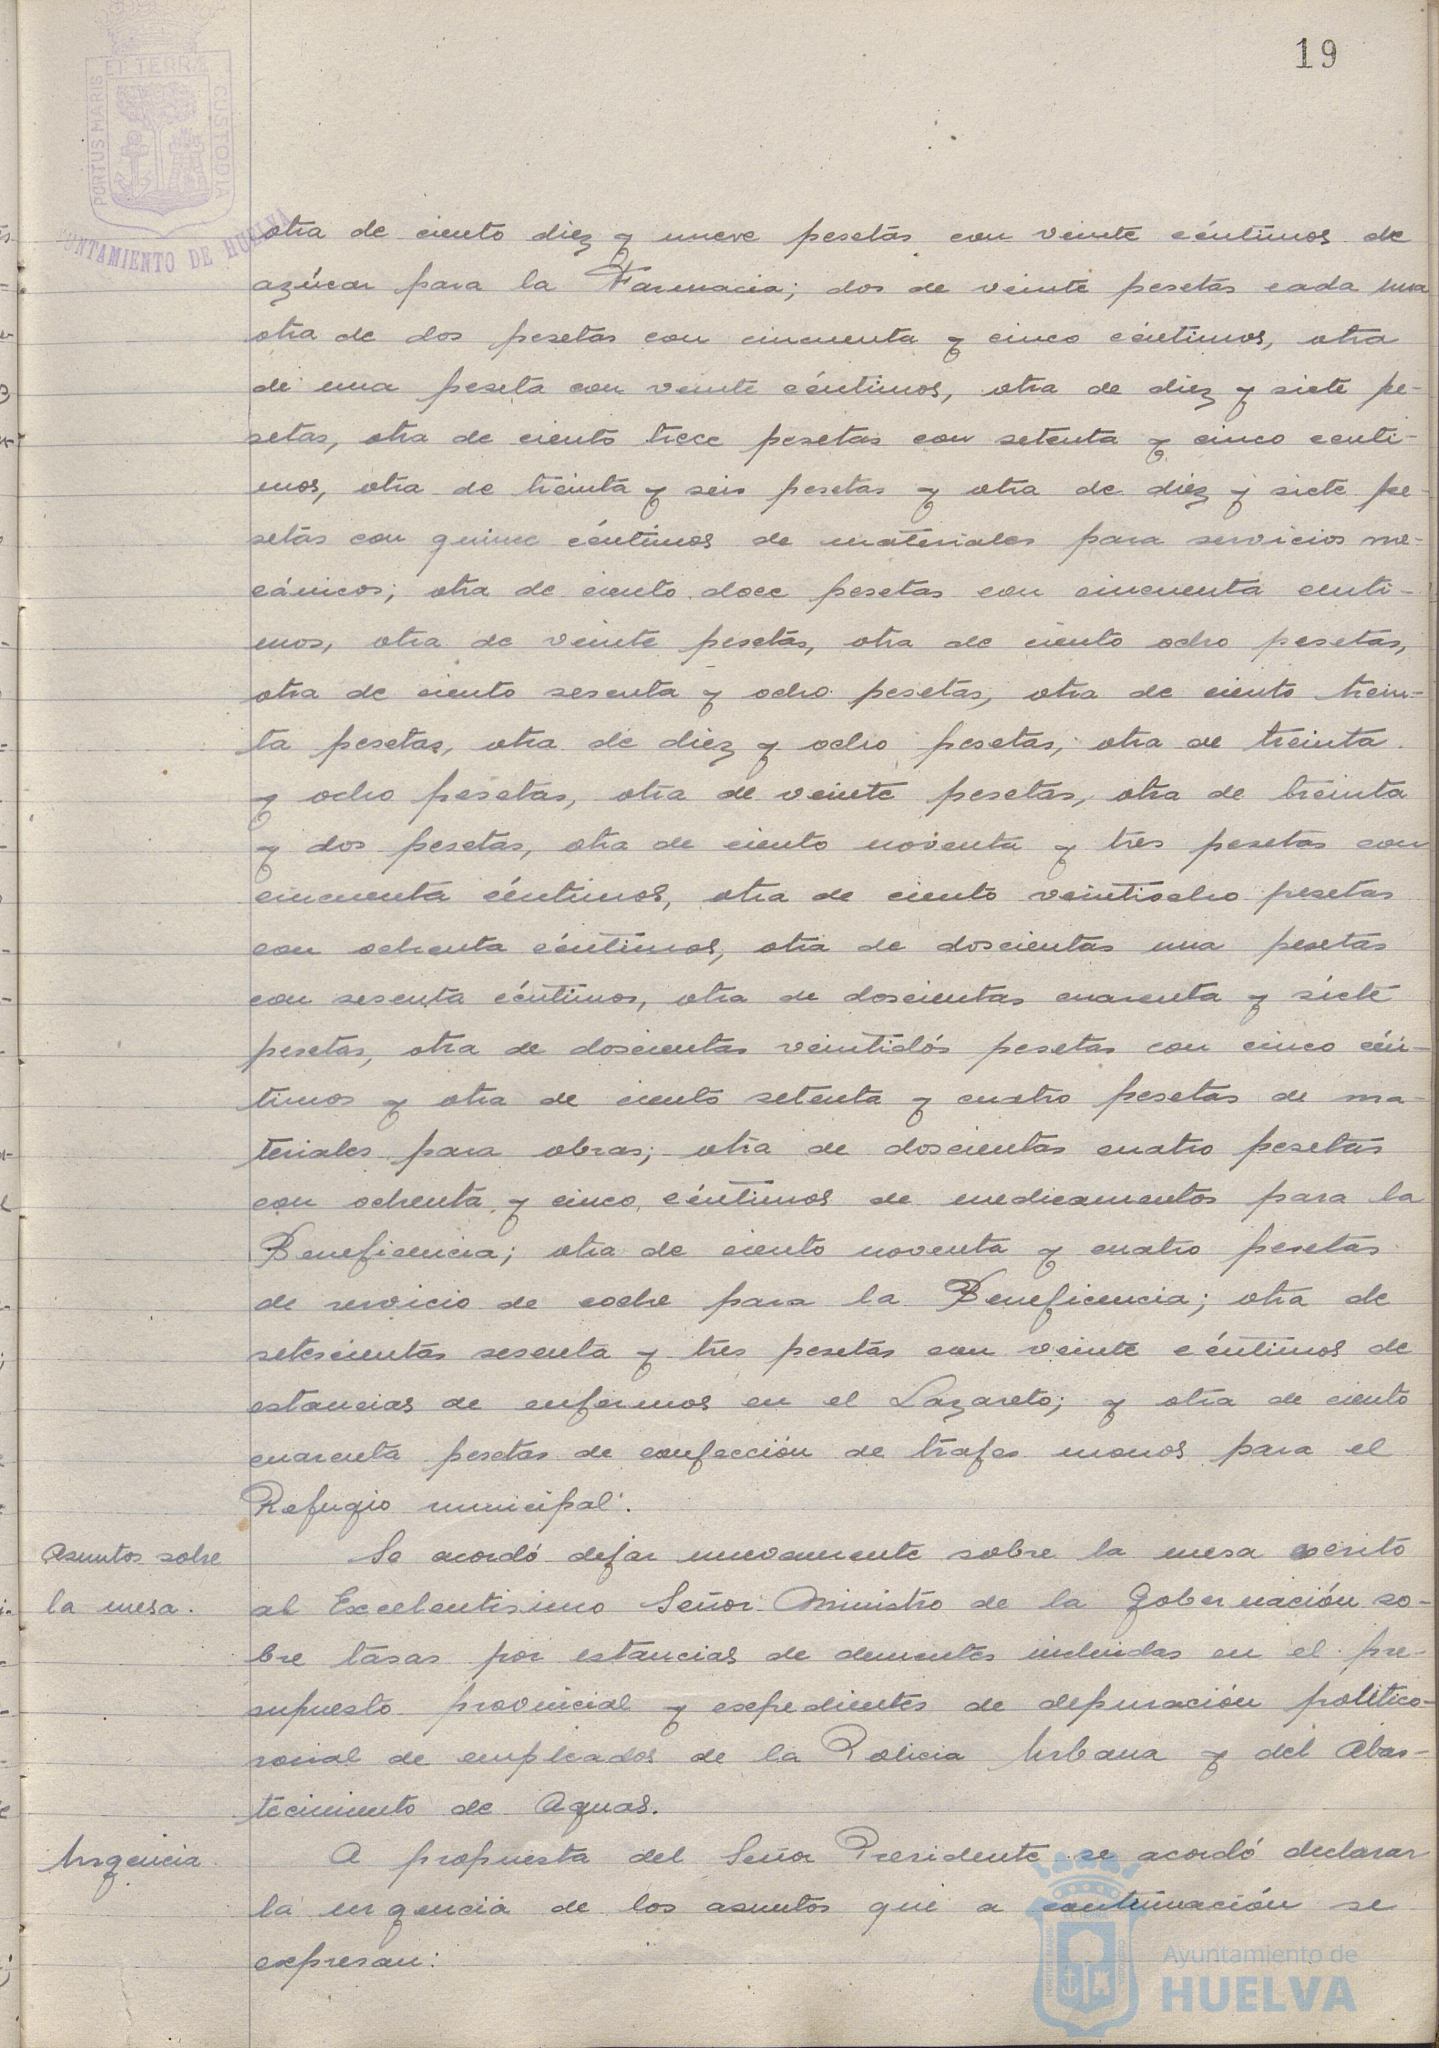 19
PORTUS MARIS ET TERRÆ CUSTODIA
AYUNTAMIENTO DE HUELVA
otra de ciento diez y nueve pesetas con veinte céntimos de
azúcar para la Farmacia; dos de veinte pesetas cada una
otra de dos pesetas con cincuenta y cinco céntimos, otra
de una peseta con veinte céntimos, otra de diez y siete pe-
setas, otra de ciento trece pesetas con setenta y cinco centi-
mos, otra de treinta y seis pesetas y otra de diez y siete pe-
setas con quince céntimos de materiales para servicios me-
cánicos; otra de ciento doce pesetas con cincuenta centi-
mos, otra de veinte pesetas, otra de ciento ocho pesetas,
otra de ciento sesenta y ocho pesetas, otra de ciento trein-
ta pesetas, otra de diez y ocho pesetas, otra de treinta
y ocho pesetas, otra de veinte pesetas, otra de treinta
y dos pesetas, otra de ciento noventa y tres pesetas con
cincuenta céntimos, otra de ciento veintiocho pesetas
con ochenta céntimos, otra de doscientas una pesetas
con sesenta céntimos, otra de doscientas cuarenta y siete
pesetas, otra de doscientas veintidós pesetas con cinco cén-
timos y otra de ciento setenta y cuatro pesetas de ma-
teriales para obras; otra de doscientas cuatro pesetas
con ochenta y cinco céntimos de medicamentos para la
Beneficencia; otra de ciento noventa y cuatro pesetas
de servicio de coche para la Beneficencia; otra de
setescientas sesenta y tres pesetas con veinte céntimos de
estancias de enfermos en el Lazareto; y otra de ciento
cuarenta pesetas de confección de trajes monos para el
Refugio municipal.
Asuntos sobre
la mesa.
Se acordó dejar nuevamente sobre la mesa escrito
al Excelentisimo Señor Ministro de la Gobernación so-
bre tasas por estancias de dementes incluidas en el pre-
supuesto provincial y expedientes de depuración politico-
social de empleados de la Policia Urbana y del Abas-
tecimiento de Aguas.
Urgencia.
A propuesta del Señor Presidente se acordó declarar
la urgencia de los asuntos que a continuación se
expresan:
Ayuntamiento de
HUELVA